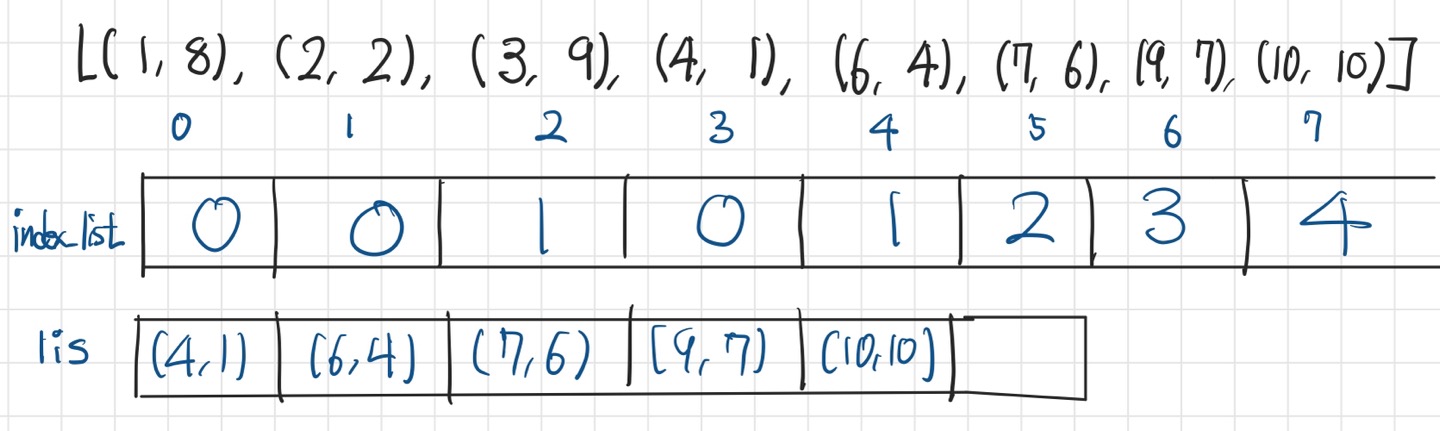 [(1, 8), (2, 2), (3, 9), (4, 1), (6, 4), (7, 6), (9, 7), (10, 10)]
0 1 2 3 4 5 6 7
index_list 0 0 1 0 1 2 3 4
lis (4,1) (6,4) (7,6) [9,7) (10,10]